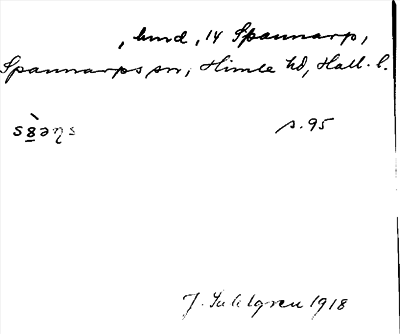 , hmd, 14 Spannarp,
Spannarps sn, Himle hd, Hall. l.
s. 95
J. Sahlgren 1918